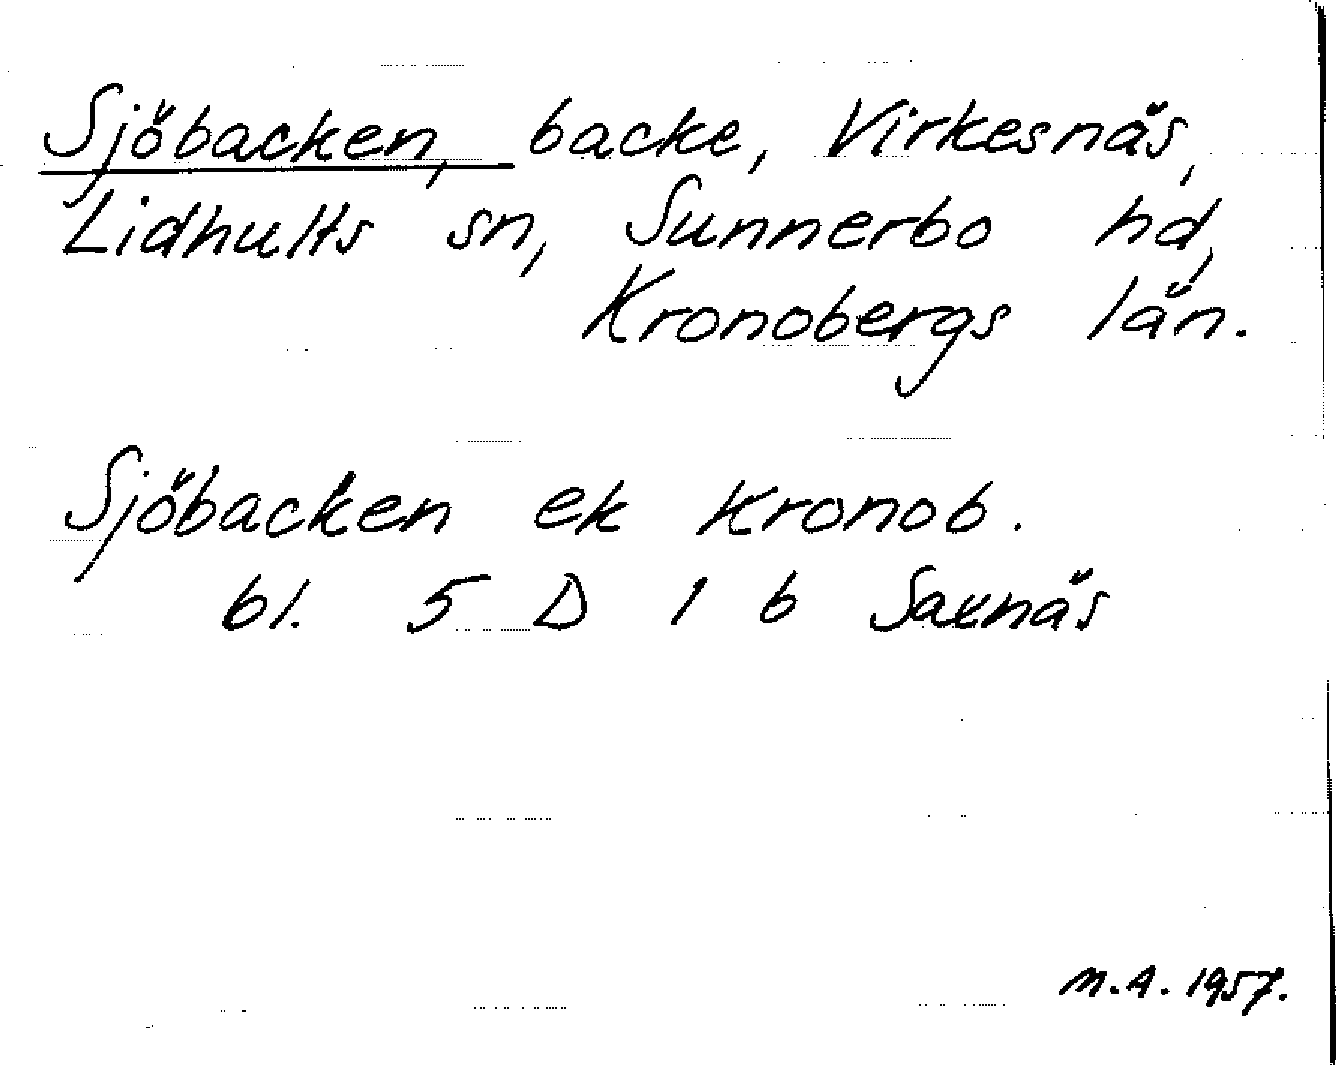 Sjöbacken, backe, Virkesnäs,
Lidhults sn, Sunnerbo hd,
Kronobergs län.
Sjöbacken ek Kronob.
bl. 5 D 1 b Saxnäs
M.A. 1957.